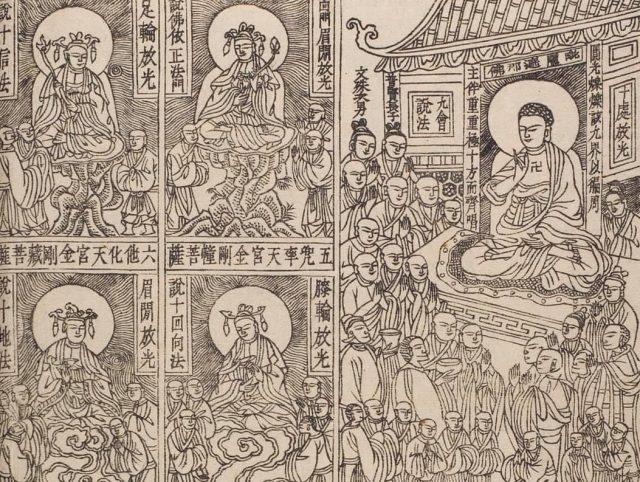 十處放光
毗盧遮那佛
主伴重重極十方而齊唱
九會
說法
普賢長子
文殊大男
眉間放光
說佛依正法門
足輪放光
說十信法
五兜率天宮金剛幢菩薩
六他化天宮金剛藏菩薩
膝輪放光
說十回向法
眉間放光
說十地法